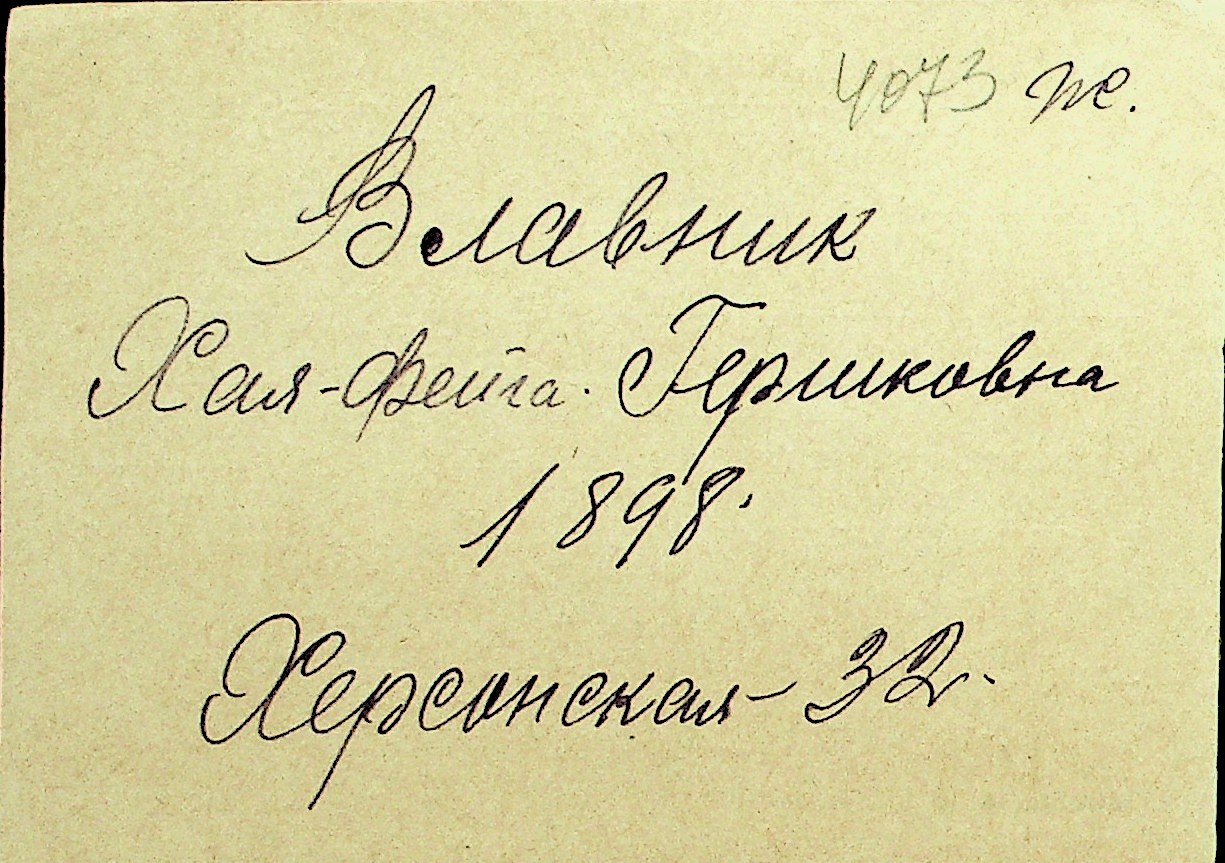 4073 ж.
Влавник
Хая-Фейга. Гершковна
1898.
Херсонская - 32.